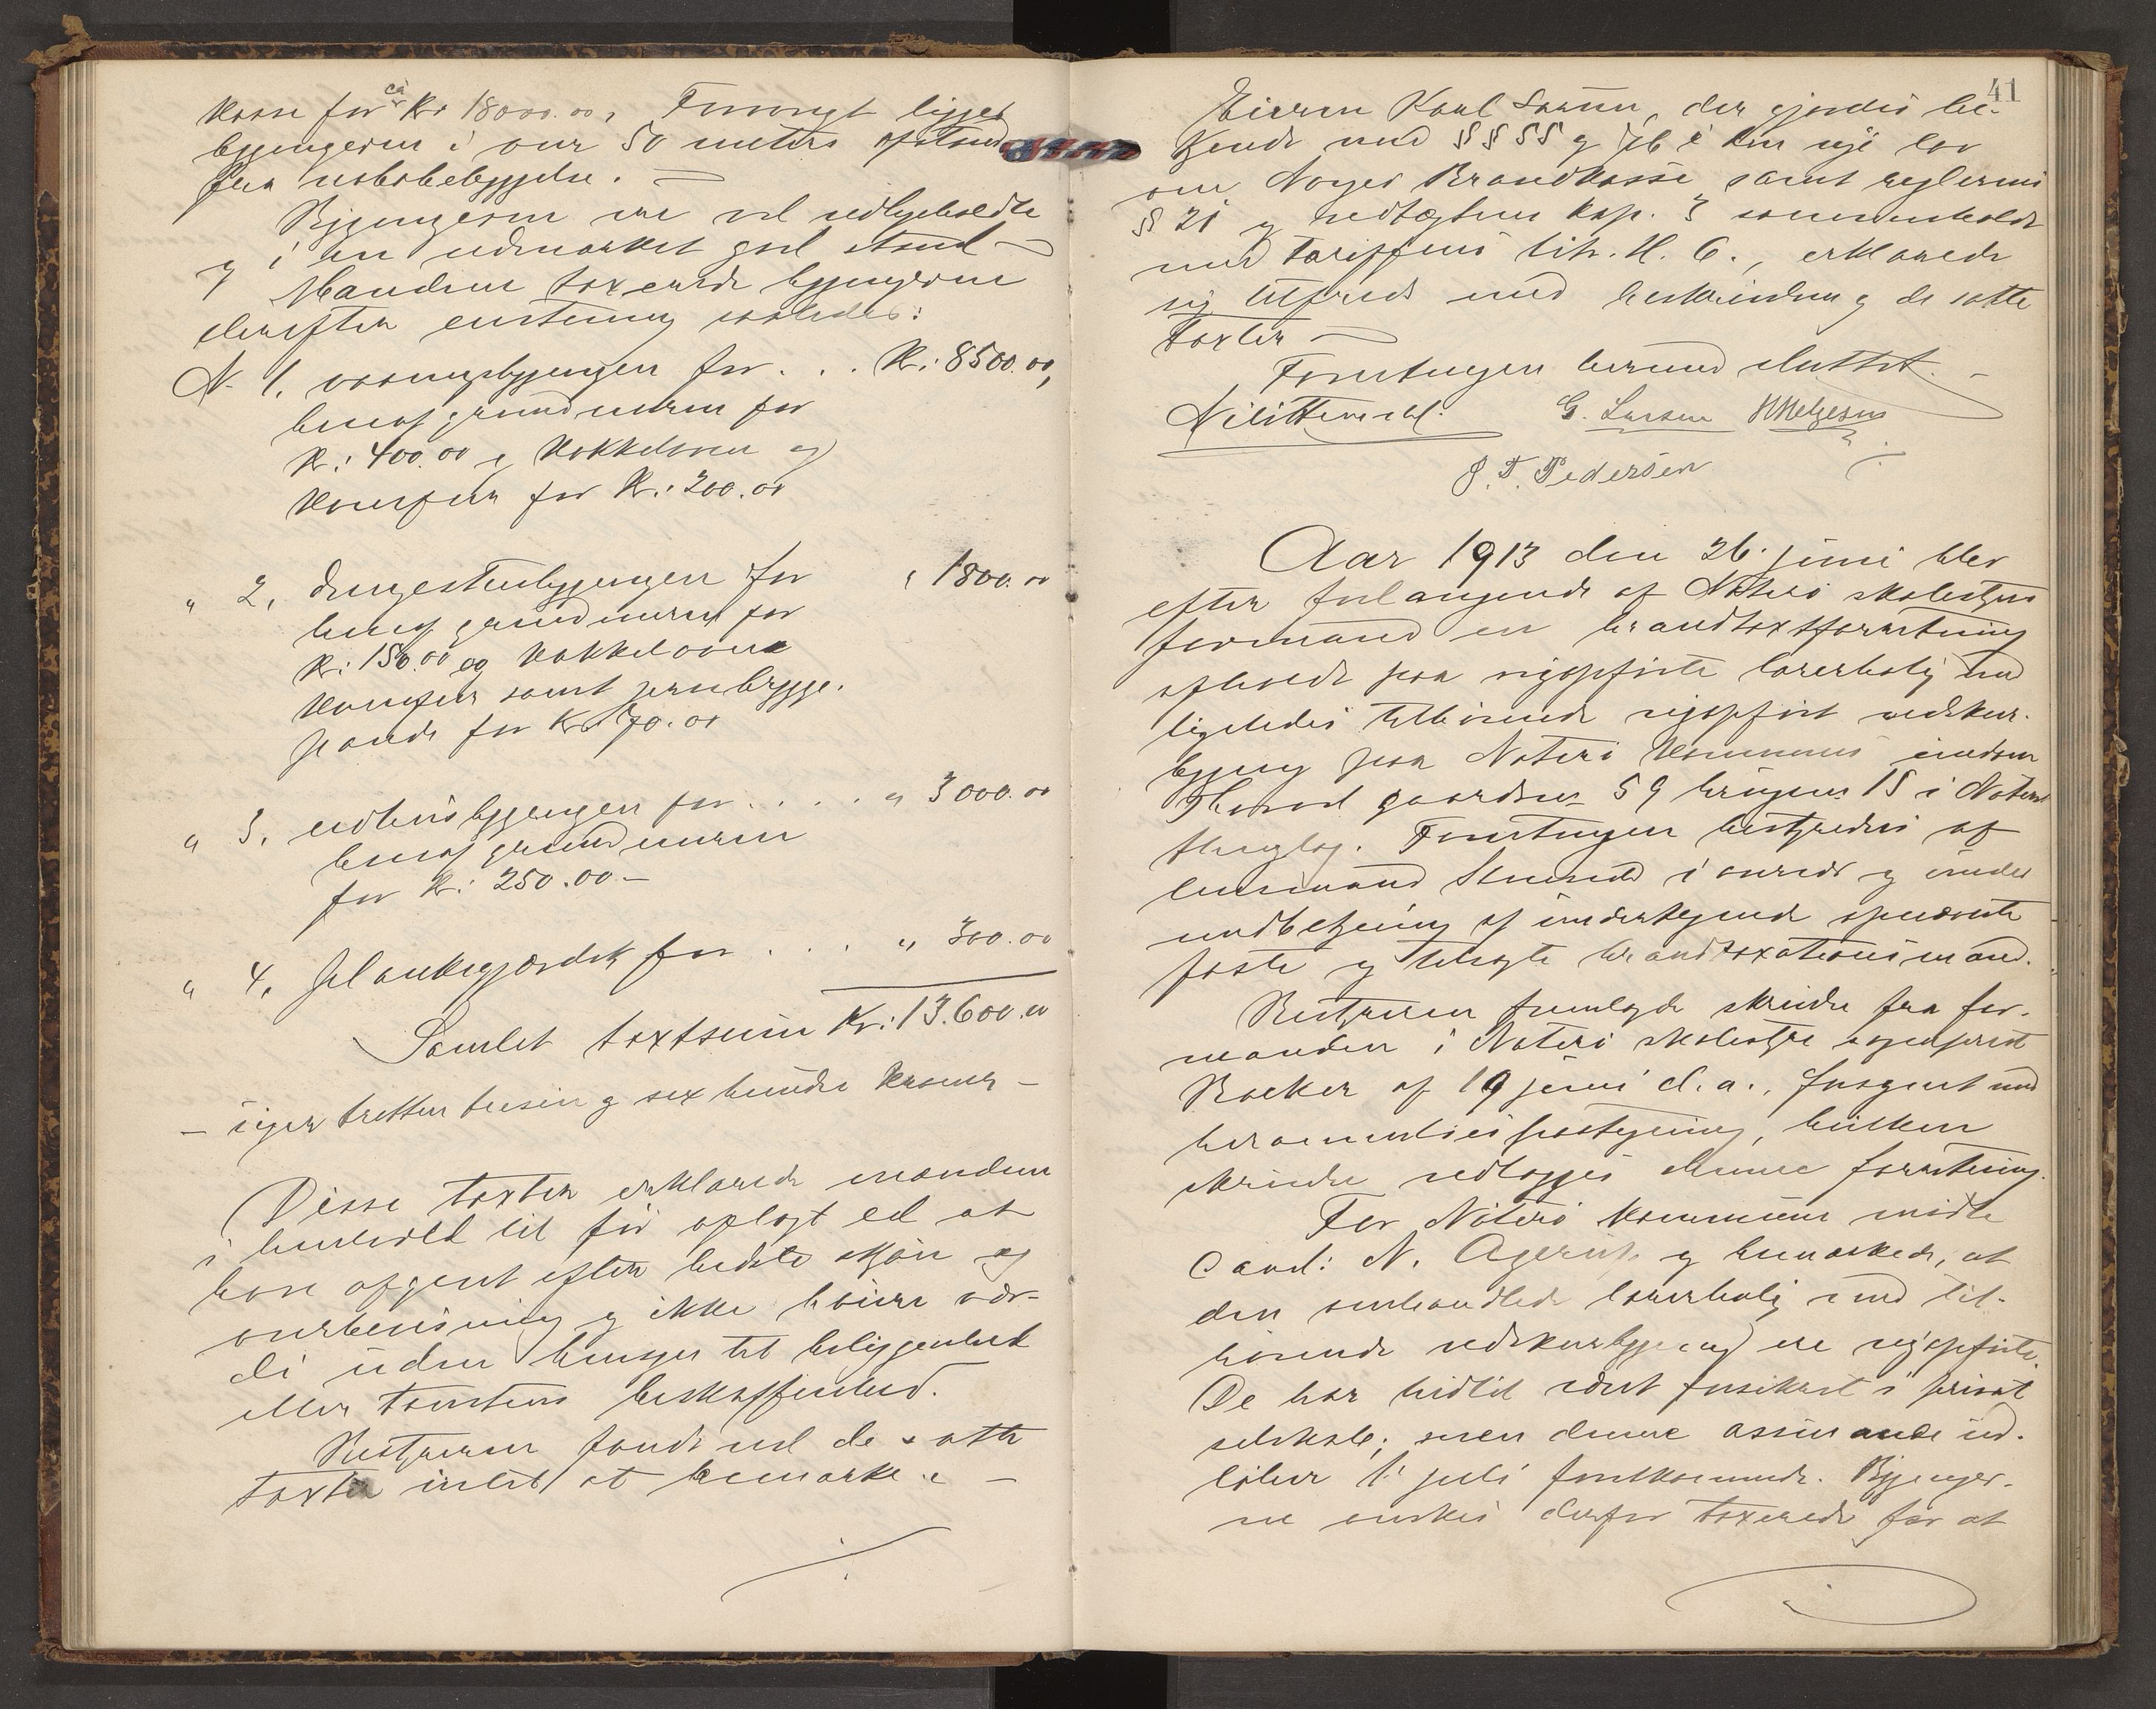 kasse for ca kr 18000.00. Forøvrigt ligger
bygningerne i over 50 meters afstand
fra nabobebyggelse. —
Bygningerne er vel vedligeholdte
og i en udmærket god stand —
Mændene taxerede bygningerne
derefter enstemig saaledes:
N 1. vaaningsbygningen for . . . Kr: 8500.00,
heraf grundmuren for
Kr: 400.00 og kakkelovne og
komfur for Kr: 200.00
" 2. drengestuebygningen for " 1800.00
heraf grundmuren for
Kr: 150.00 og kakkelovne
komfur samt jernbrygge-
pande for Kr 70.00
" 3. udhusbygningen for . . . . " 3000.00
heraf grundmuren
for Kr: 250.00 —
" 4. plankegjærdet for . . . . " 300.00
Samlet taxtsum Kr: 13.600.00
— siger tretten tusin og sex hundre kroner —
Disse taxter erklærede mændene
i henhold til før aflagt ed at
have afgivet efter bedste skjøn og
overbevisning og ikke høiere vær-
di uden hensyn til beliggenhed
eller tomtens beskaffenhed.
Bestyreren fandt ved de satte
taxter intet at bemærke. —
41
Eieren Karl, der gjordes be-
kjendt med §§ 55 og 56 i den nye lov
om Norges Brandkasse, samt reglernes
§ 21 og vedtægtens kap. 3 sammenholdt
med tariffens litr. H. 6., erklærede
sig tilfreds med beskrivelsen og de satte
taxter —
Forretningen hermed sluttet. —
G. Larsen H Melgesen
J. T. Pedersen
Aar 1913 den 26. juni blev
efter forlangende af Nøterø skolestyres
formand en brandtaxtforretning
afholdt paa nyopførte lærerbolig med
ligeledes tilhørende nyopført vedskur-
bygning paa Nøterø kommunes eiendom
gaardsn. 59 bruksn. 15 i Nøterø
thinglag. Forretningen bestyredes af
lensmand i overvær og under
medbetjening af undertegnede opnævnte
faste og tilsagte brandtaxationsmænd.
Bestyreren fremlagde skrivelse fra for-
manden i Nøterø skolestyre sogneprest
Barker af 19 juni d. a., forsynet med
berammelsespaategning, hvilken
skrivelse vedlægges denne forretning.
For Nøterø kommune mødte
Cand: N. Agerup og bemærkede, at
den omhandlede lærerbolig med til-
hørende vedskurbygning ere nyopførte.
De har hidtil været forsikret i privat
selskab; men denne assurance ud-
løber 1' juli førstkommende. Bygninger-
ne ønskes derfor taxerede for at